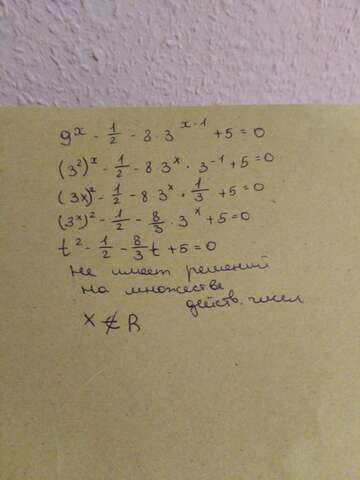 9^x - 1/2 - 8 · 3^(x-1) + 5 = 0
(3²)^x - 1/2 - 8 · 3^x · 3^(-1) + 5 = 0
(3x)² - 1/2 - 8 · 3^x · 1/3 + 5 = 0
(3^x)² - 1/2 - 8/3 · 3^x + 5 = 0
t² - 1/2 - 8/3 t + 5 = 0
Не имеет решений
на множестве
действ. чисел
x ∉ R